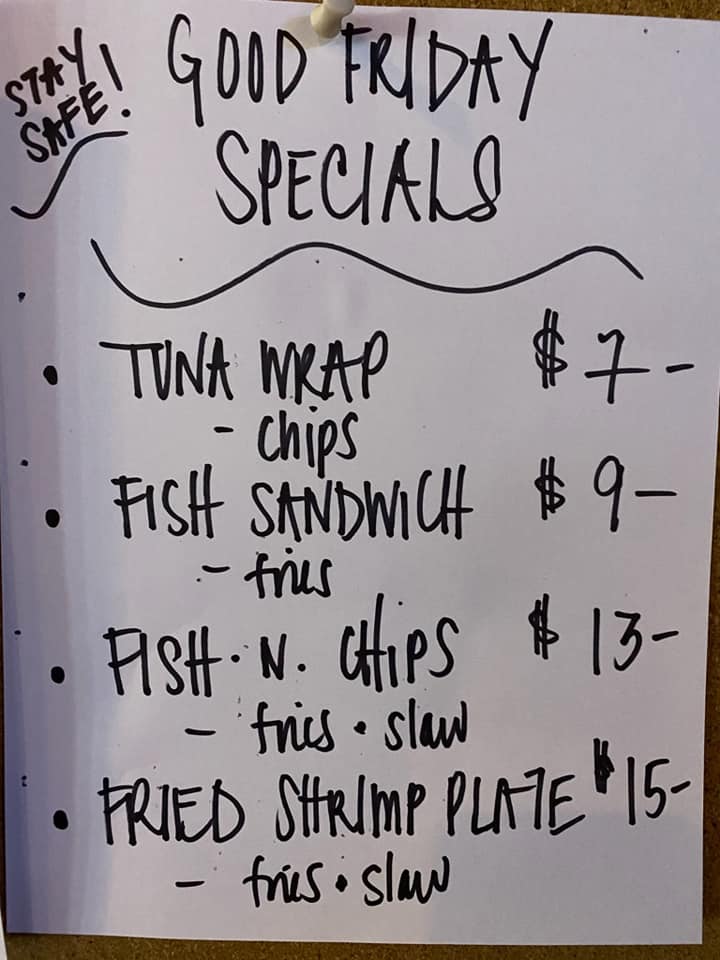 STAY
SAFE!
GOOD FRIDAY
SPECIALS
• TUNA WRAP $7-
- chips
• FISH SANDWICH $9-
- fries
• FISH·N·CHIPS $13-
- fries • slaw
• FRIED SHRIMP PLATE $15-
- fries • slaw